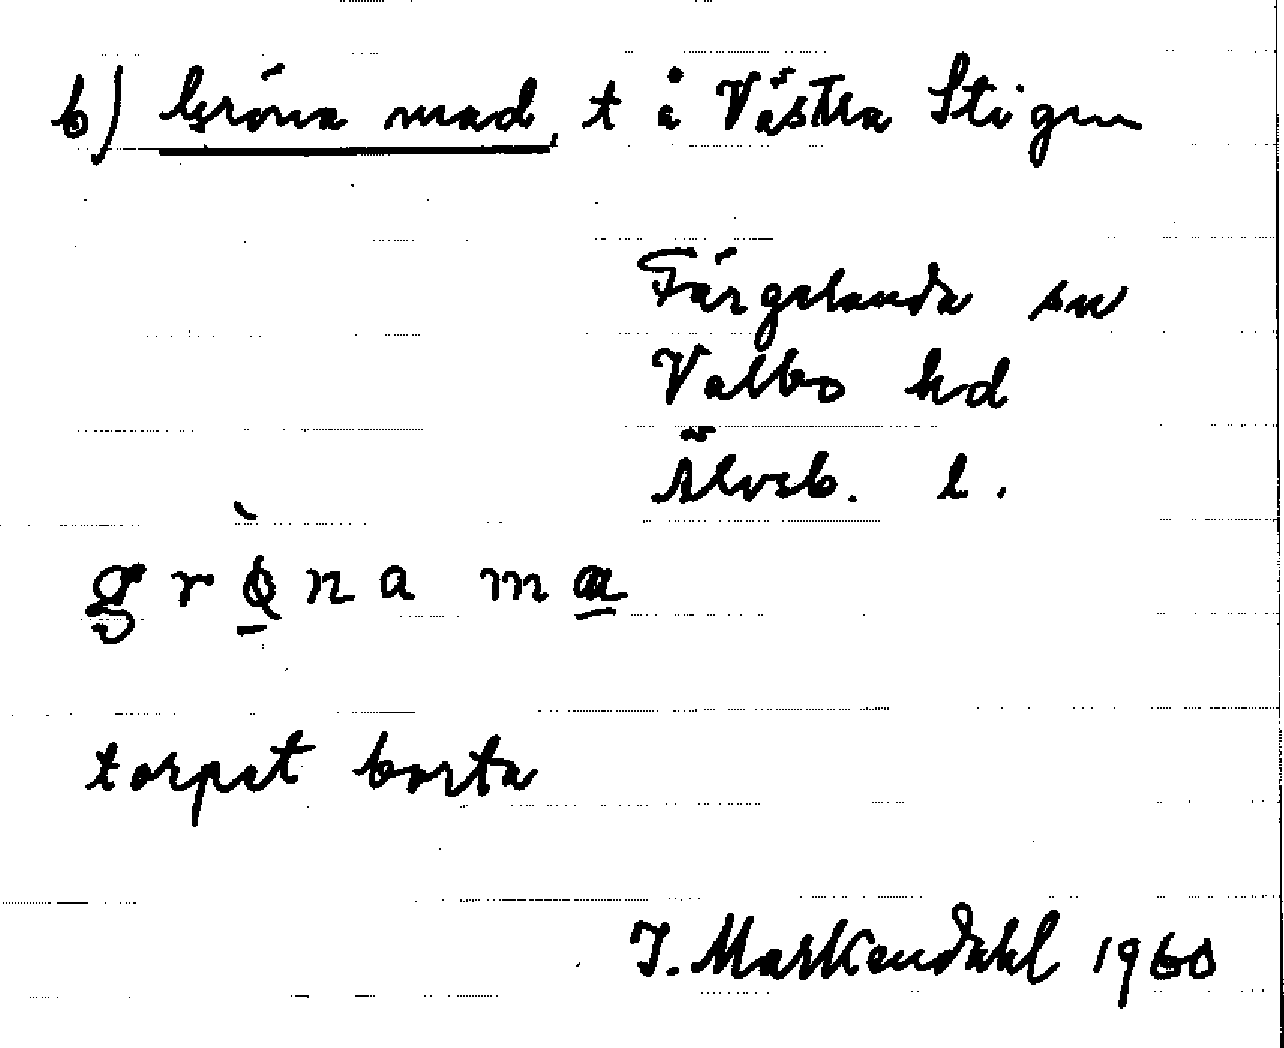 b) Gröna mad, t å Västra Stigen
Färgelanda sn
Valbo hd
Älvsb. l.
grø̀na mɑ
torpet borta
J. Markendahl 1960